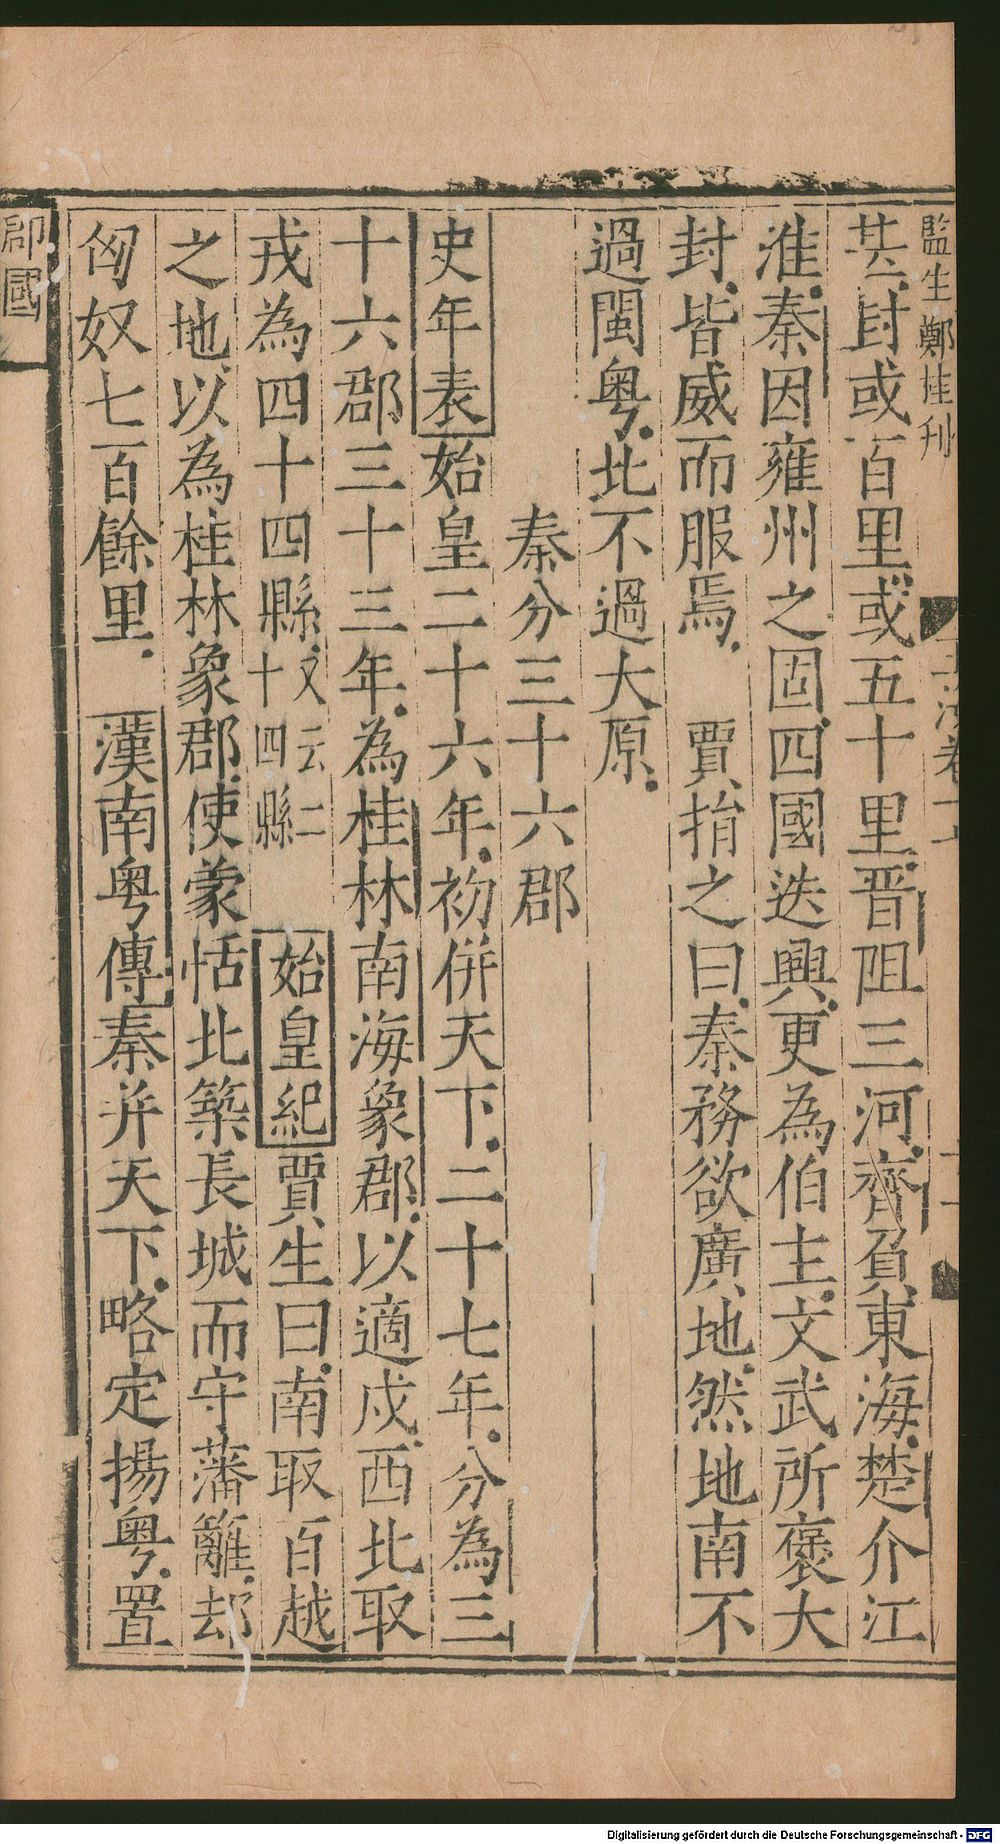 監生鄭桂刋
甚封或百里或五十里晋阻三河齊負東海楚介江
淮秦因雍州之固四國迭興更為伯主文武所褒大
封皆威而服焉　賈捐之曰秦務欲廣地然地南不
過閩粤北不過大原
秦分三十六郡
史年表始皇二十六年初併天下二十七年分為三
十六郡三十三年為桂林南海象郡以適戍西北取
戎為四十四縣又云二十四縣　始皇紀賈生曰南取百越
之地以為桂林象郡使蒙恬北築長城而守藩籬却
匈奴七百餘里　漢南粤傳秦并天下略定揚粤置
郡國
Digitalisierung gefördert durch die Deutsche Forschungsgemeinschaft - DFG